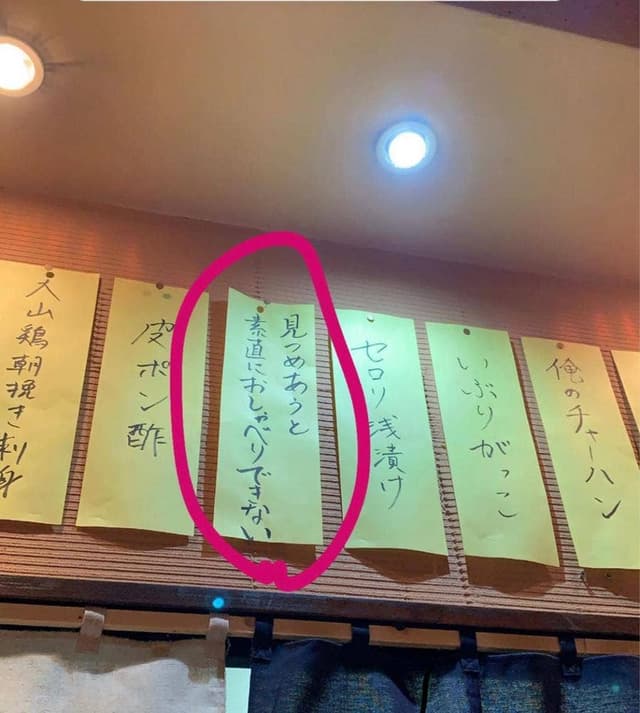 俺のチャーハン
いぶりがっこ
セロリ浅漬け
見つめあうと
素直におしゃべりできない
皮ポン酢
大山鶏朝挽き刺身